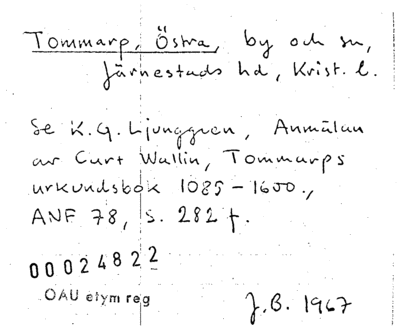 Tommarp, Östra, by och sn,
Järrestads hd, Krist. l.
Se K.G. Ljunggren, Anmälan
av Curt Wallin, Tommarps
urkundsbok 1085-1600.,
ANF 78, s. 282 f.
00024822
OAU etym reg
J.B. 1967